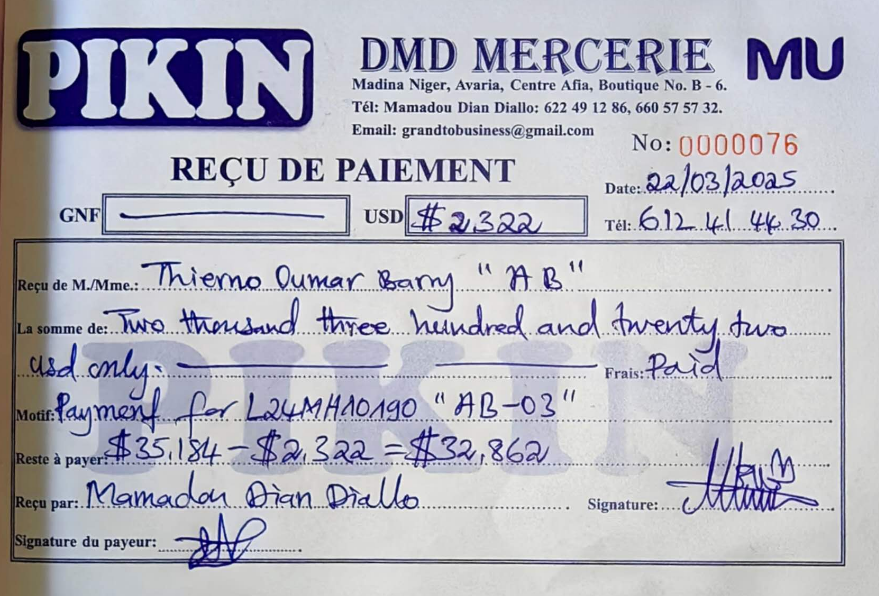 PIKIN
DMD MERCERIE MU
Madina Niger, Avaria, Centre Afia, Boutique No. B - 6.
Tél: Mamadou Dian Diallo: 622 49 12 86, 660 57 57 32.
Email: grandtobusiness@gmail.com
No: 0000076
REÇU DE PAIEMENT
Date: 22/03/2025
GNF USD $2,322 Tél: 612 41 44 30
Reçu de M./Mme.: Thierno Oumar Barry "AB"
La somme de: Two thousand three hundred and twenty two
usd only. Frais: Paid
Motif: Payment for L24MH10190 "AB-03"
Reste à payer: $35,184 - $2,322 = $32,862
Reçu par: Mamadou Dian Diallo Signature:
Signature du payeur:
PIKIN